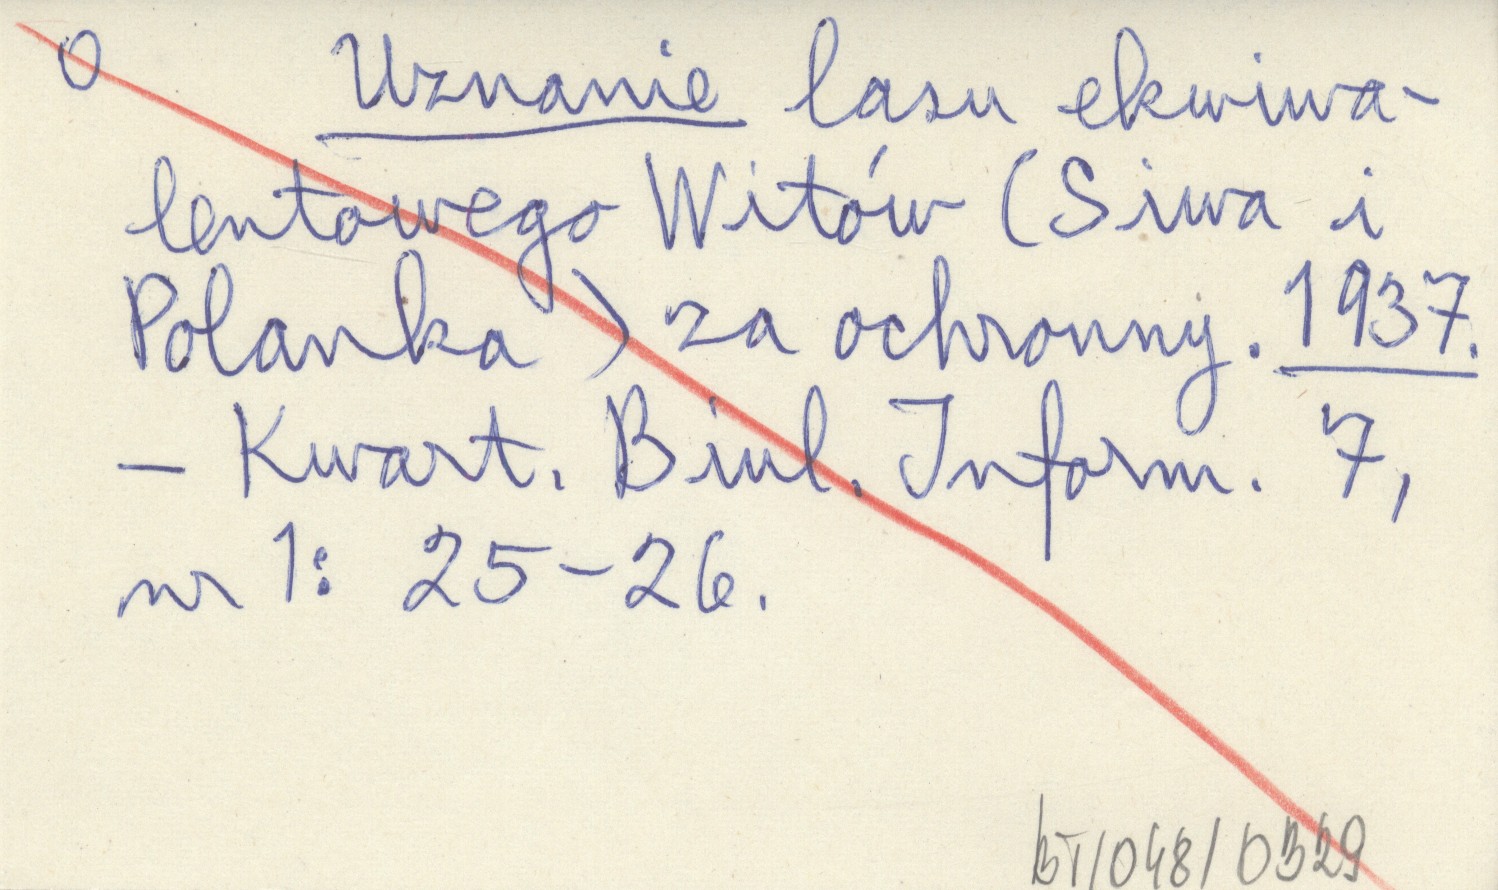 0 Uznanie lasu ekwiwa-
lentowego Witów (Siwa i
Polanka) za ochronny. 1937.
– Kwart. Biul. Inform. 7,
nr 1: 25–26.
BT/048/0329